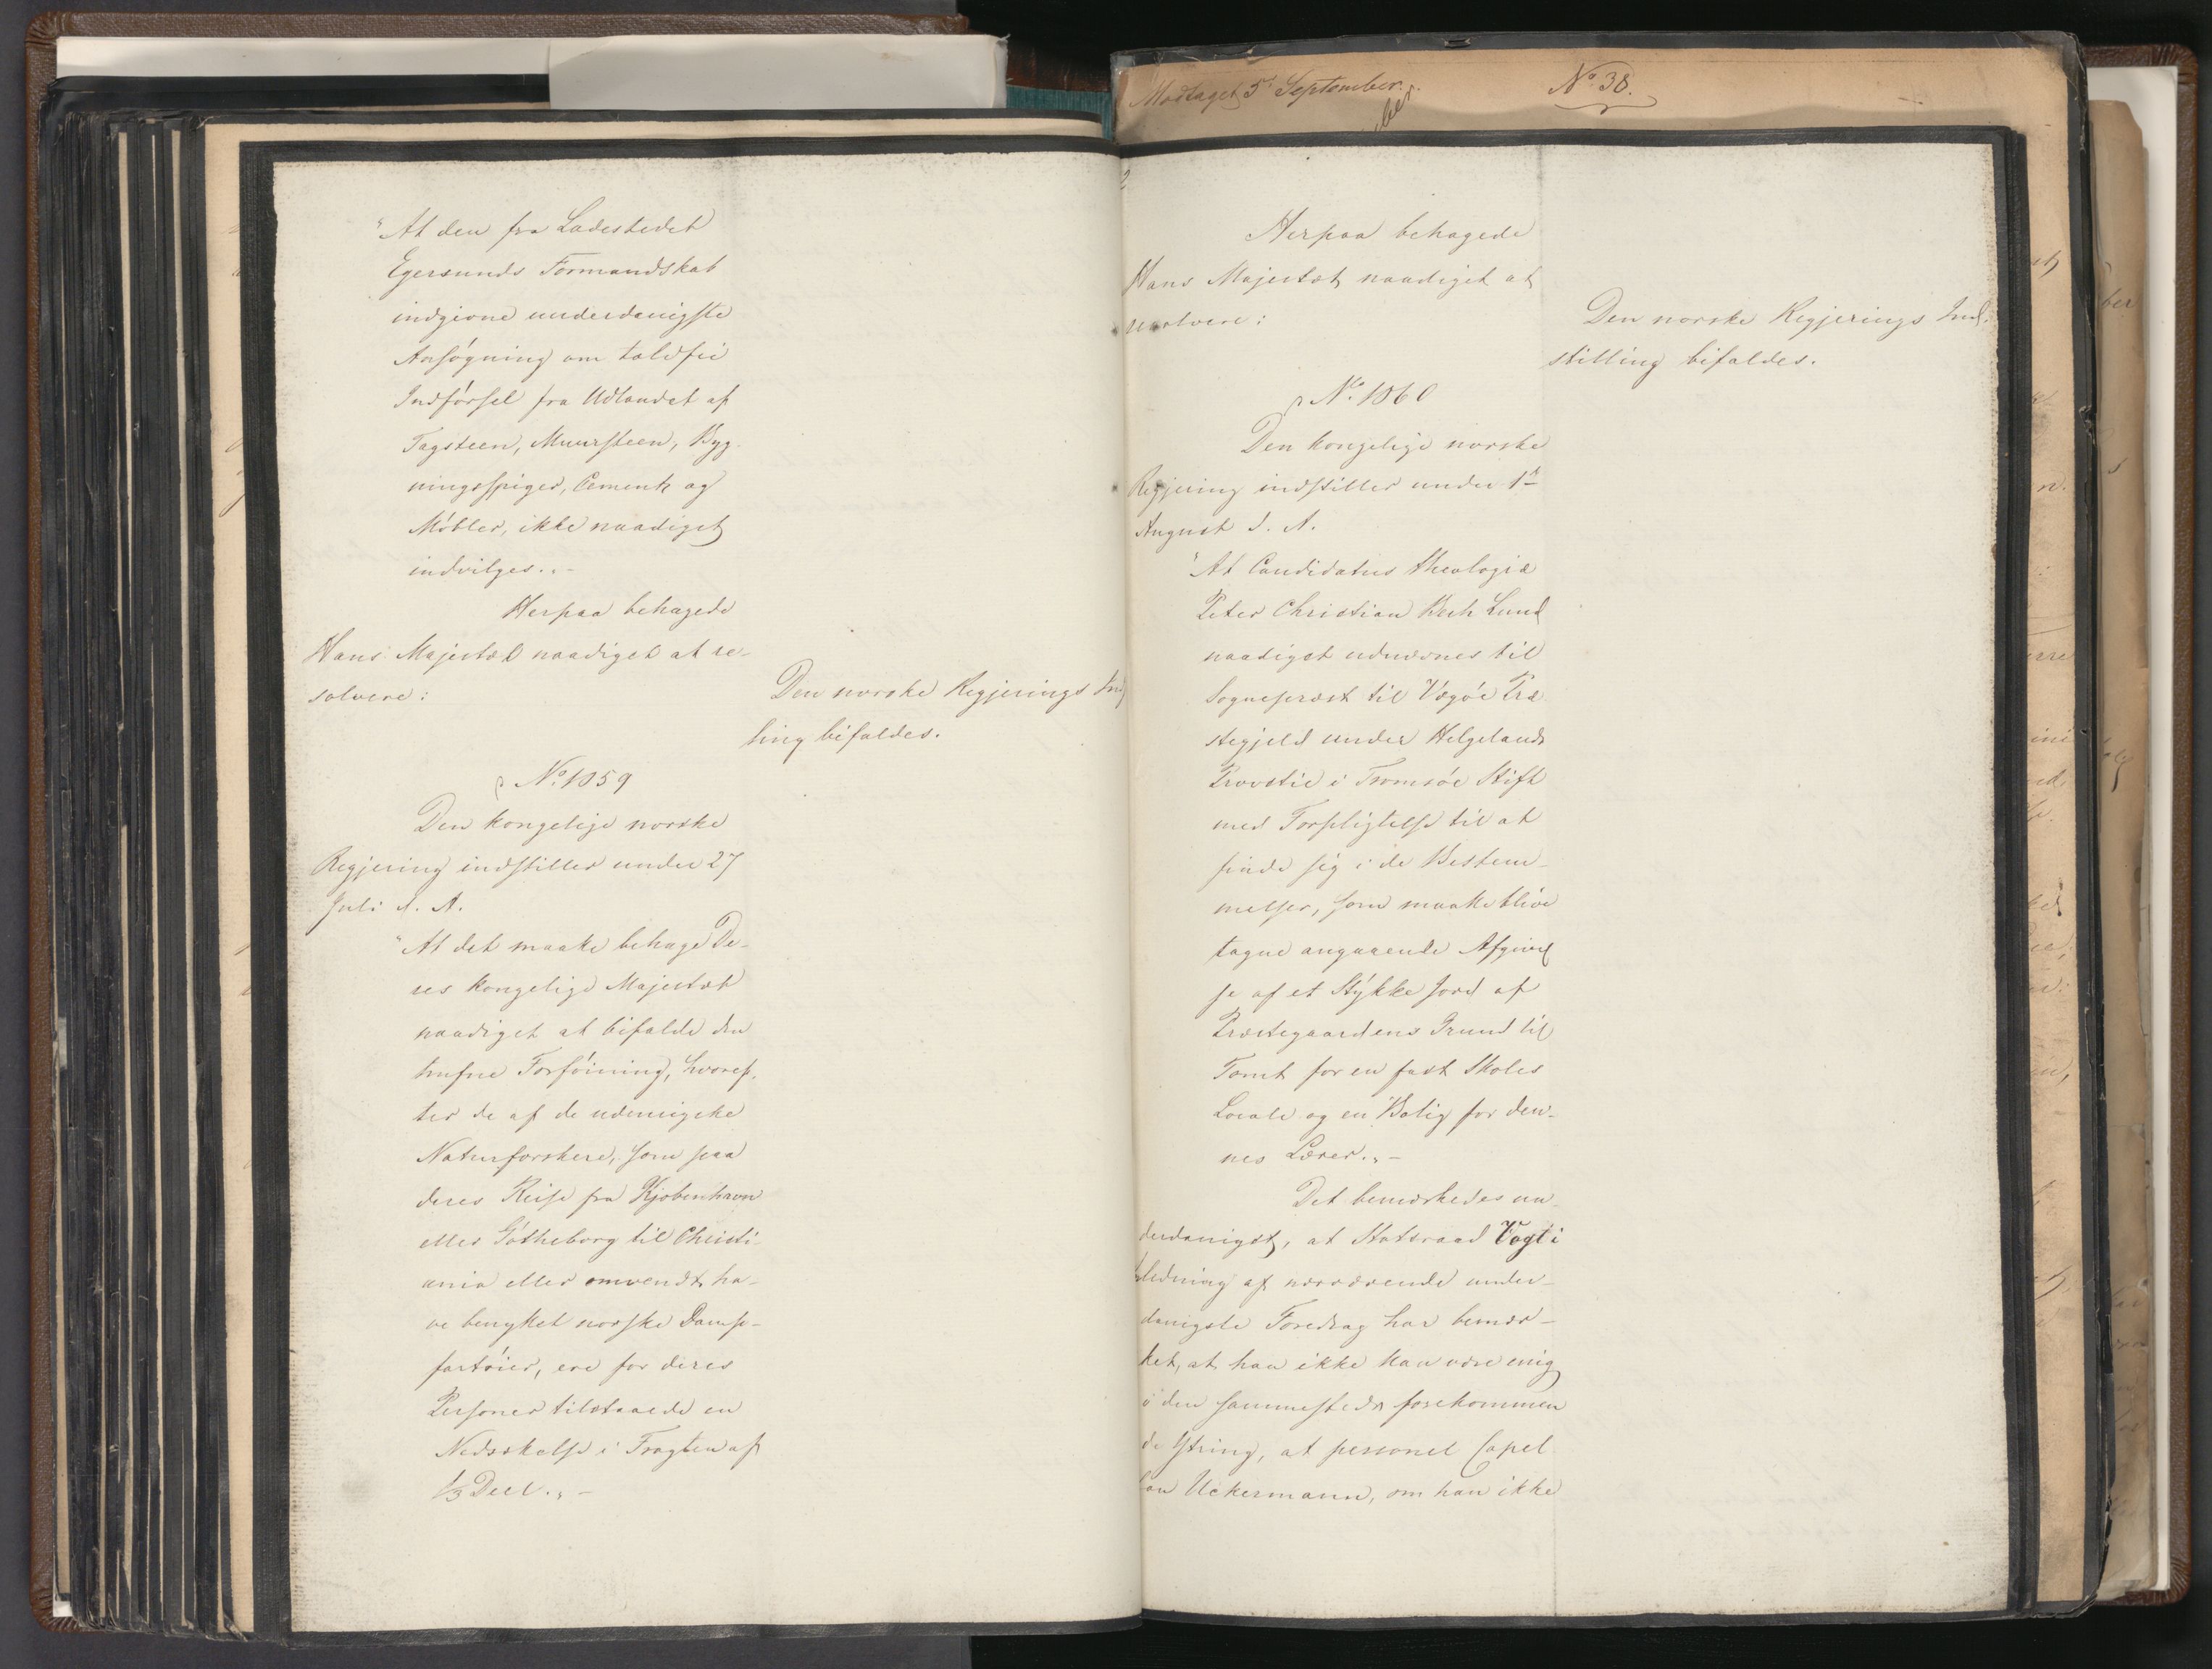 "At den fra Ladestedet
Egersunds Formandskab
indgivne underdanigste
Ansøgning om toldfri
Indførsel fra Udlandet af
Tagsteen, Muursteen, Byg-
ningsspiger, Cement og
Møbler, ikke naadigst
indvilges."-
Herpaa behagede
Hans Majestæt naadigst at re-
solvere:
Den norske Regjerings Ind
ling bifaldes.
No. 1859
Den kongelige norske
Regjering indstiller under 27
Juli d. A.
"At det maatte behage De-
res kongelige Majestæt
naadigst at bifalde den
trufne Forføining, hvoref-
ter de af de udenrigske
Naturforskere, som paa
deres Reise fra Kjøbenhavn
eller Gøtheborg til Christi-
ania eller omvendt ha-
ve benyttet norske Damp-
fartøier, ere for deres
Personer tilstaaede en
Nedsættelse i Fragten af
1/3 Deel."-
Modtaget 5t September.
No. 38.
ber
2
Herpaa behagede
Hans Majestæt naadigst at
resolvere:
Den norske Regjerings Ind-
stilling bifaldes.
No. 1860
Den kongelige norske
Regjering indstiller under 1ste
August d. A.
"At Candidatus theologiæ
Peter Christian Bech Lund
naadigst udnævnes til
Sognepræst til Vegøe Præ-
stegjeld under Helgelands
Provstie i Tromsøe Stift
med Forpligtelse til at
finde sig i de Bestem-
melser, som maatte blive
tagne angaaende Afgivel
se af et Stykke Jord af
Præstegaardens Grund til
Tomt for en fast Skoles
Locale og en Bolig for den-
nes Lærer."-
Det bemærkedes un-
derdanigst, at Statsraad Vogt i
ledning af nærværende under-
danigste Foredrag har bemær-
ket, at han ikke kan være enig
i den sammesteds forekommen
de Ytring, at personel Capel-
lan Uckermann, om han ikke